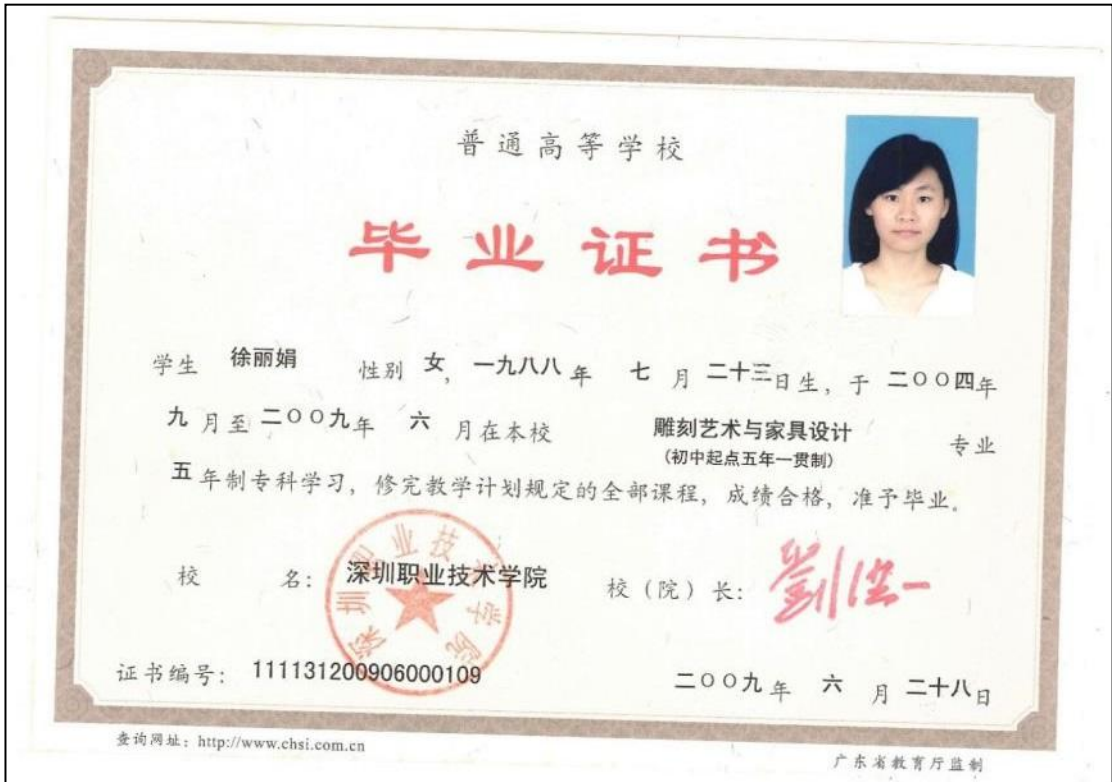 普通高等学校
毕业证书
学生 徐丽娟 性别 女，一九八八年 七月二十三日生，于二〇〇四年
九月至二〇〇九年 六月在本校 雕刻艺术与家具设计 专业
（初中起点五年一贯制）
五年制专科学习，修完教学计划规定的全部课程，成绩合格，准予毕业。
校 名：深圳职业技术学院 校（院）长：劉洪一
深圳职业技术学院
证书编号：111131200906000109 二〇〇九年 六月二十八日
查询网址：http://www.chsi.com.cn
广东省教育厅监制